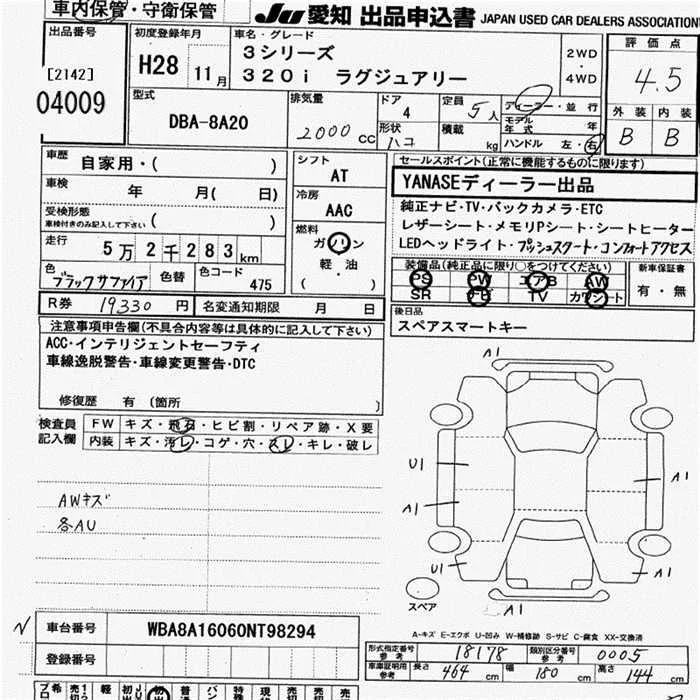 車内保管・守衛保管
JU 愛知 出品申込書 JAPAN USED CAR DEALERS ASSOCIATION
出品番号
[2142]
04009
初度登録年月
H28 11月
車名・グレード
3シリーズ
320i ラグジュアリー
2WD
・
4WD
評価点
4.5
外装 内装
B B
型式
DBA-8A20
排気量
2000 CC
ドア
4
形状
ハコ
定員 5人
積載 kg
ディーラー・並行
モデル年式 年
ハンドル 左・右
車歴 自家用・( )
車検 年 月( 日)
受検形態
車検付きのみ記入して下さい ( )
走行 5万2千283km
色 ブラックサファイア 色替 色コード 475
シフト
AT
冷房
AAC
燃料
ガソリン
軽・油
( )
セールスポイント(正常に機能するものに限ります)
YANASEディーラー出品
純正ナビ・TV・バックカメラ・ETC
レザーシート・メモリPシート・シートヒーター
LEDヘッドライト・プッシュスタート・コンフォートアクセス
装備品(純正品に限り○をつけてください)
PS PW エアB AW
SR TV カワシート
新車保証書
有・無
R券 19330円 名変通知期限 月 日
後日品
スペアスマートキー
注意事項申告欄(不具合内容等は具体的に記入して下さい)
ACC・インテリジェントセーフティ
車線逸脱警告・車線変更警告・DTC
修復歴 有(箇所 )
検査員記入欄
FW キズ・飛石・ヒビ割・リペア跡・X要
内装 キズ・汚レ・コゲ・穴・スレ・キレ・破レ
AWキズ
各AU
A1
U1
A1
A1
U1
A1
A1
スペア
A-キズ E-エクボ U-凹み W-補修跡 S-サビ C-腐食 XX-交換済
車台番号 WBA8A16060NT98294
登録番号
形式指定番号参考 18178 類別区分番号参考 0005
車庫証明用参考 長さ 464cm 幅 180cm 高さ 144cm